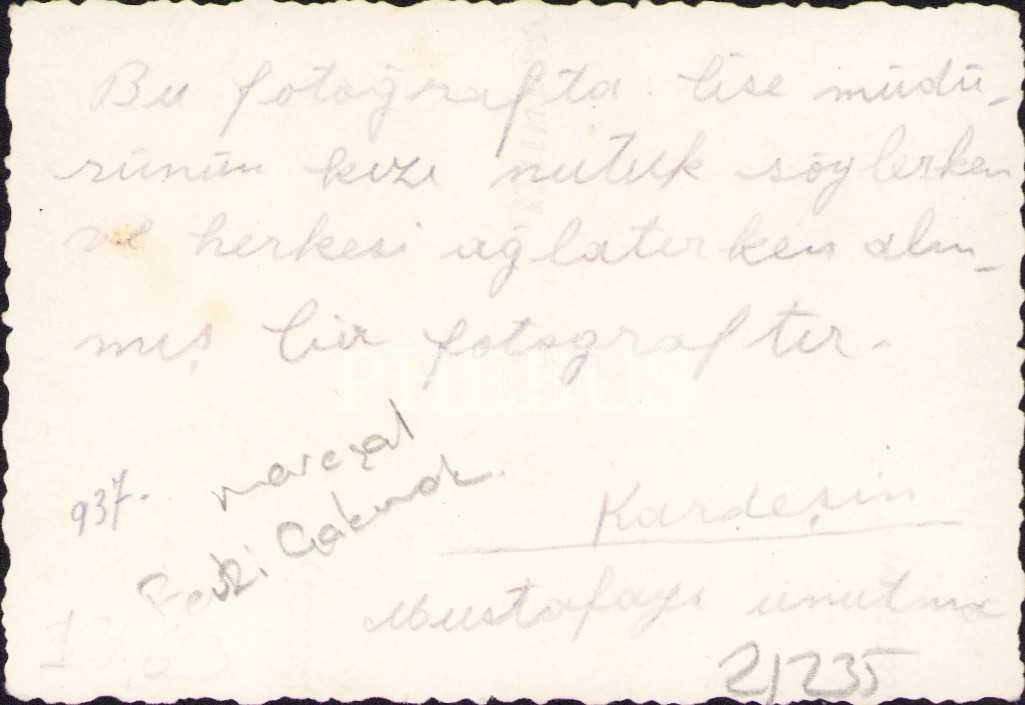 Bu fotoğrafta lise müdü-
rünün kızı nutuk söylerken
ve herkesi ağlatırken alın-
mış bir fotograftır.
PHEBUS
937.
mareşal
Fevzi Çakmak
Kardeşin
Mustafayı unutma
2/235